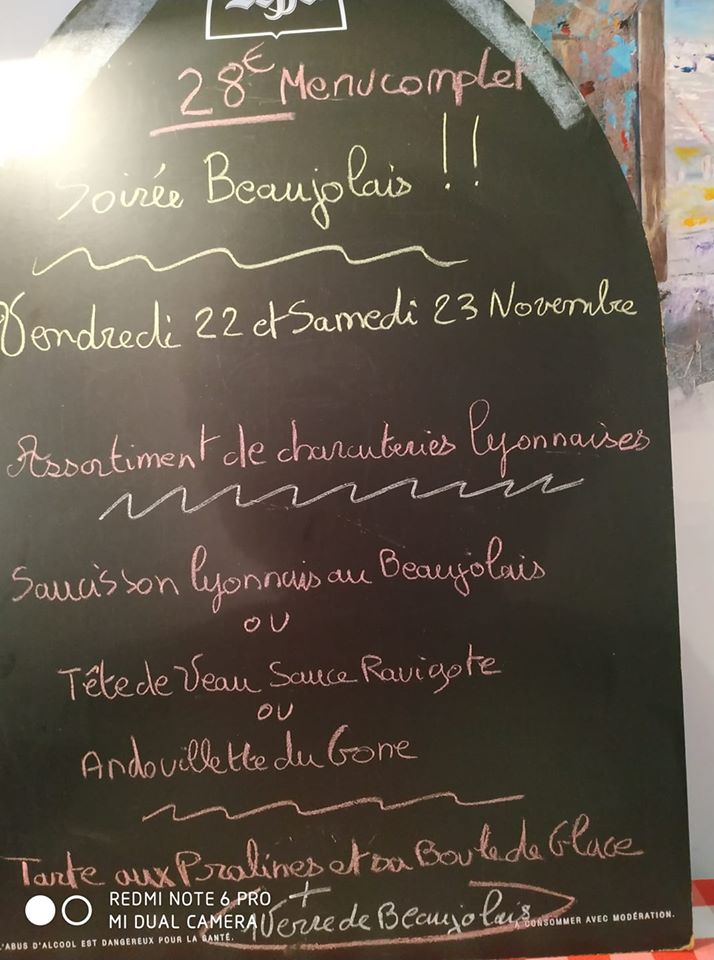 28€ Menu complet
Soirée Beaujolais !!
Vendredi 22 et Samedi 23 Novembre
Assortiment de charcuteries lyonnaises
Saucisson lyonnais au Beaujolais
ou
Tête de Veau Sauce Ravigote
ou
Andouillette du Gone
Tarte aux Pralines et sa Boule de Glace
+
1 Verre de Beaujolais
REDMI NOTE 6 PRO
MI DUAL CAMERA
L'ABUS D'ALCOOL EST DANGEREUX POUR LA SANTÉ.
À CONSOMMER AVEC MODÉRATION.